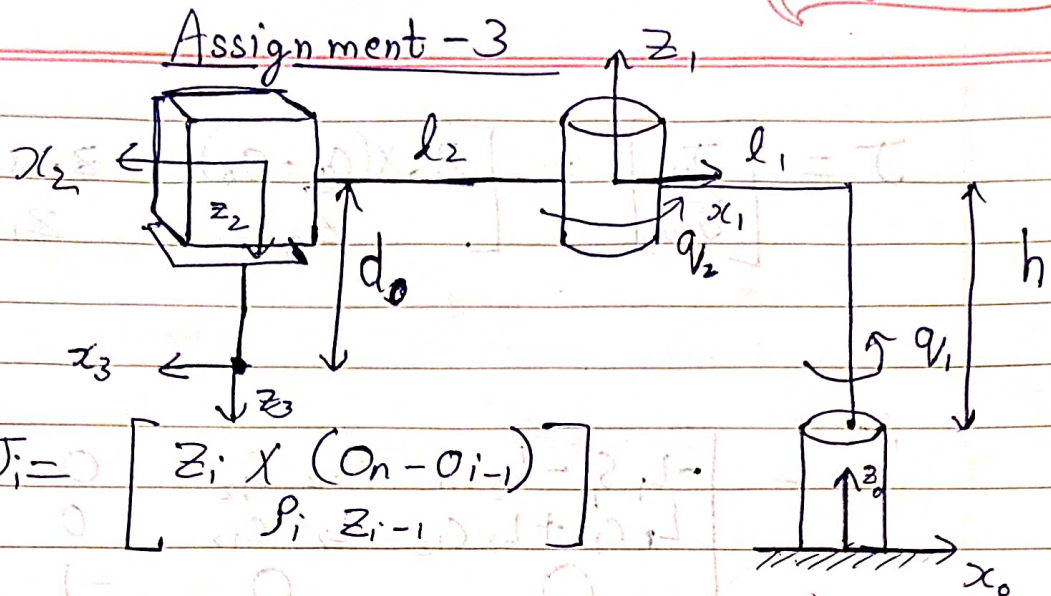 Assignment-3
z₁
x₂
l₂
l₁
z₂
x₁
q₂
d₀
h
x₃
q₁
z₃
Jᵢ = [ Zᵢ × (Oₙ - Oᵢ₋₁)
ρᵢ Zᵢ₋₁ ]
z₀
x₀